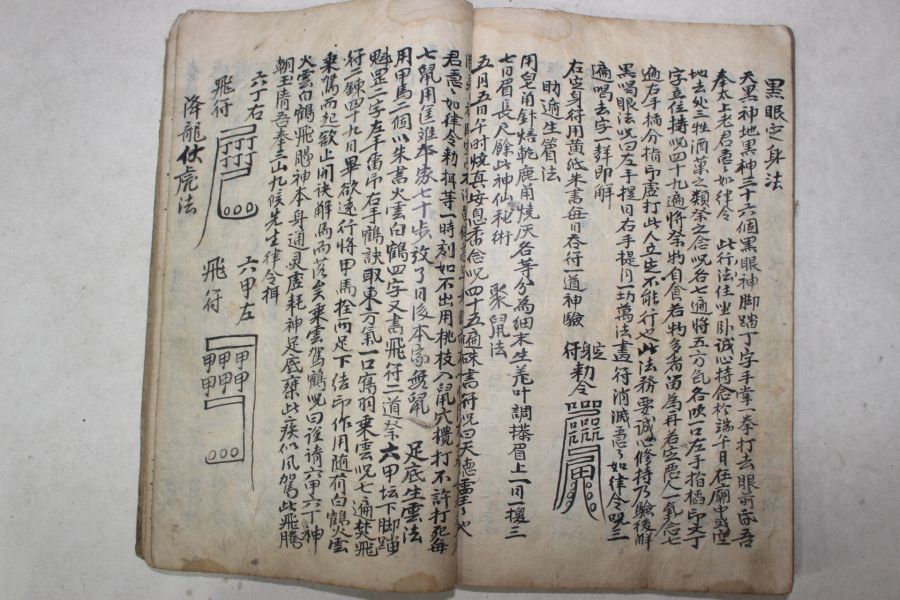 黑眼定身法
天黑神地黑神三十六個黑眼神脚踏丁字手掌一拳打去眼前昏吾
奉太上老君急々如律令 此行法住坐卧誠心持念於端午日在廟中或空
地去処三牲酒菓之類祭之念咒各七遍將五方氣各吹一口左手指掐印步丁
字立位持咒四十九遍將祭物自食若物多者留為再若定悪人一氣念七
遍右手掐分指印虛打此人立定不能行也此法務要誠心修持乃驗後觧
黑唱眼法咒曰左手提日右手提月一切萬法盡行消滅急々如律令咒三
遍唱去字一群即觧
右定身符用黄紙朱書每日吞符一道神驗
定身符 勅令
助遁生眉法
用皂角針焙乾鹿角燒灰各等分為細末生羗叶調搽眉上一日擦三
七日眉長尺餘此神仙秘術
聚鼠法
五月五日午時燒真安息香念咒四十五遍硃書符咒曰天德靈
君急々如律令勅揖等一時刻如不出用桃枝入鼠穴攪打不許打死每
七鼠用筐雉本家七十步放了日後本家無鼠
足底生雲法
用甲馬二個以朱書火雲白鶴四字又書飛符二道祭六甲坛下脚踏
魁罡二字左手雷印右手鶴訣取東方氣一口寫羽乘雲咒七遍焚飛
符二鍊四十九日畢欲遠行將甲馬栓两足下結印作用随有白鶴火雲
乘駕而起欲止開訣解馬而落矣乘雲駕鶴咒曰謹請六甲六丁神
火雲白鶴飛騰神本身通灵虛耗神足底棄此疾似風駕此飛騰
朝玉清吾奉三山九候先生律令揖
六丁右飛符
六甲左飛符
甲甲甲甲甲甲
降龍伏虎法